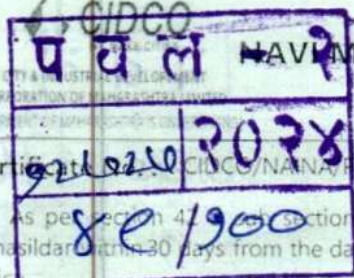 CIDCO
प व ल - २
NAVI M
CITY & INDUSTRIAL DEVELOPMENT
CORPORATION OF MAHARASHTRA LIMITED
२०२४
ertificate CIDCO/NAINA/P
As per section 42 sub section
४९/१००
hasildar within 30 days from the da